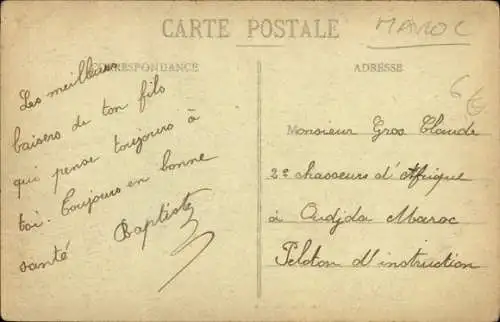 CARTE POSTALE
MAROC
CORRESPONDANCE
ADRESSE
Les meilleurs
baisers de ton fils
qui pense toujours à
toi. Toujours en bonne
santé Baptiste
6
Monsieur Gros Claude
2e chasseurs d'Afrique
à Oudjda Maroc
Peloton d'instruction